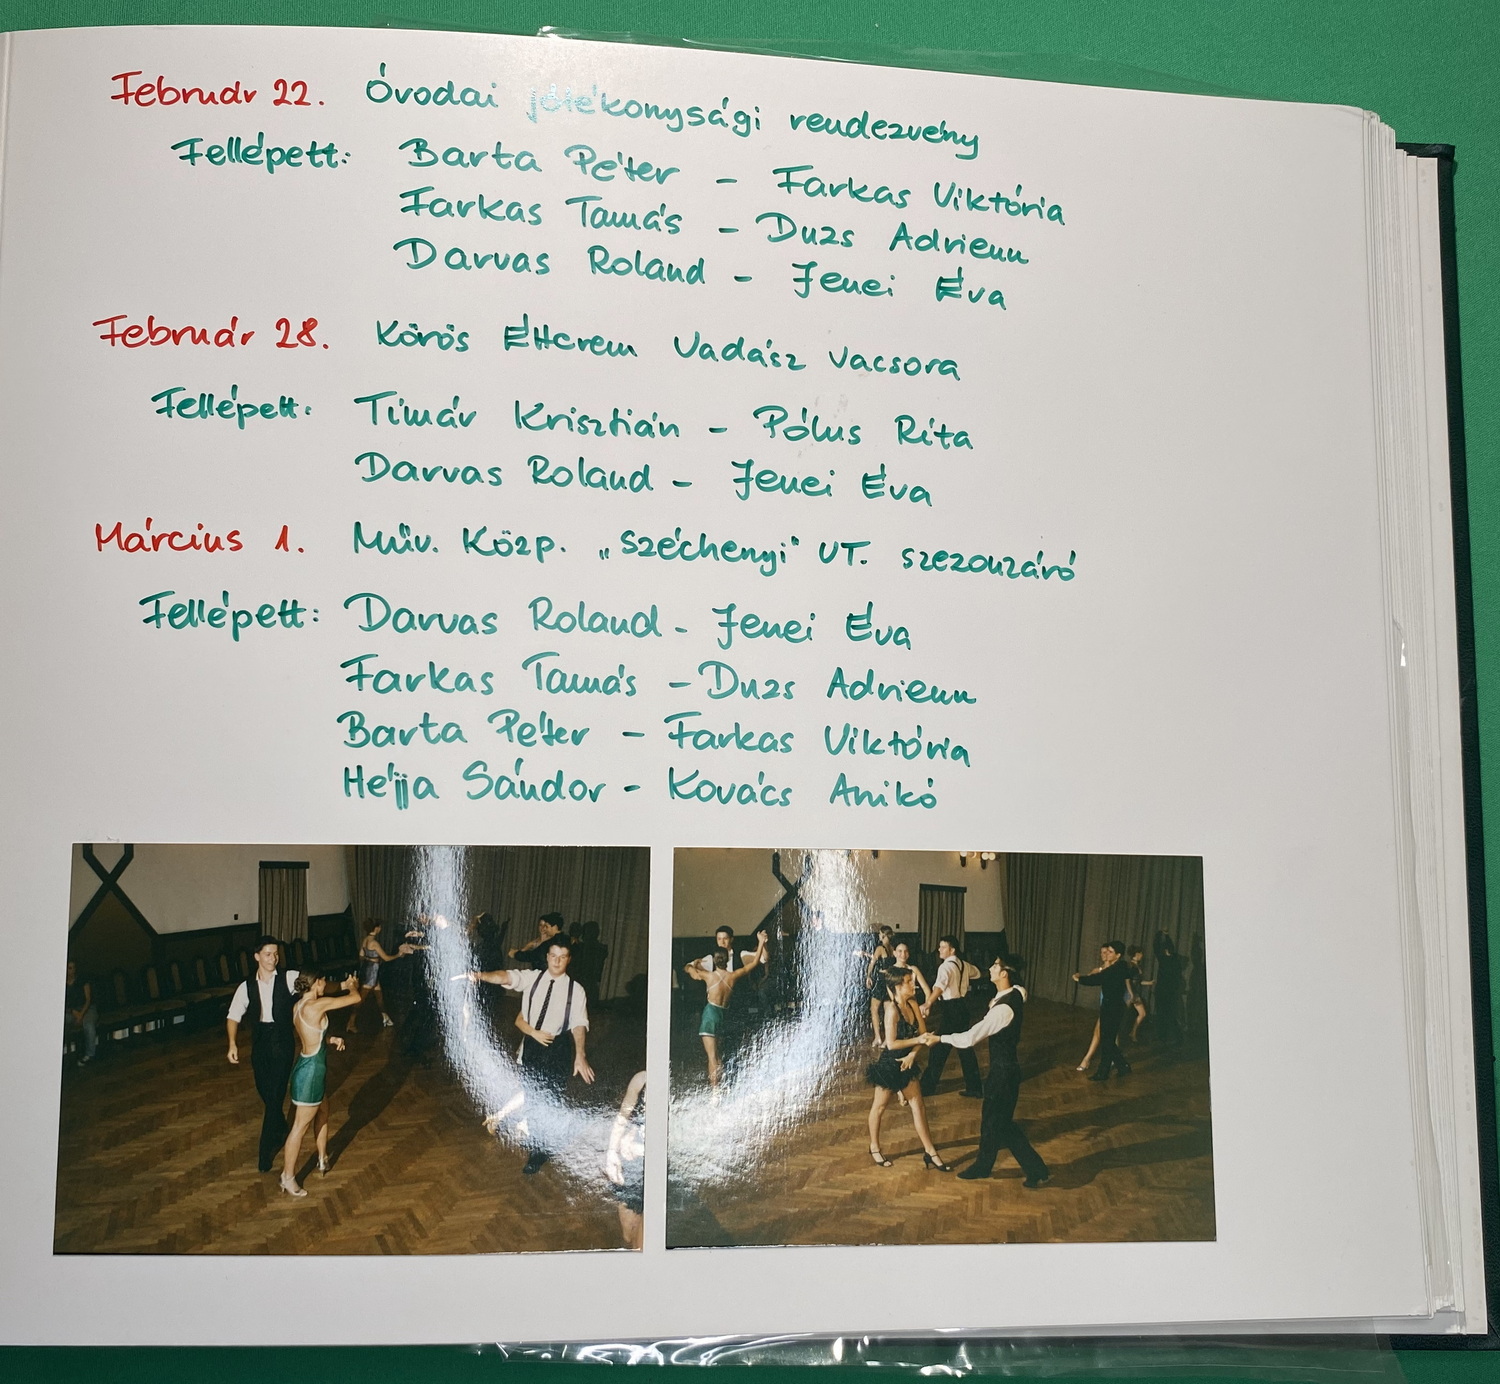 Február 22. Óvodai jótékonysági rendezvény
Fellépett: Barta Péter - Farkas Viktória
Farkas Tamás - Duzs Adrienn
Darvas Roland - Jenei Éva
Február 28. Körös Étterem Vadász vacsora
Fellépett: Tímár Krisztián - Pólus Rita
Darvas Roland - Jenei Éva
Március 1. Műv. Közp. „Széchenyi" ÚT. szezonzáró
Fellépett: Darvas Roland - Jenei Éva
Farkas Tamás - Duzs Adrienn
Barta Péter - Farkas Viktória
Héjja Sándor - Kovács Anikó